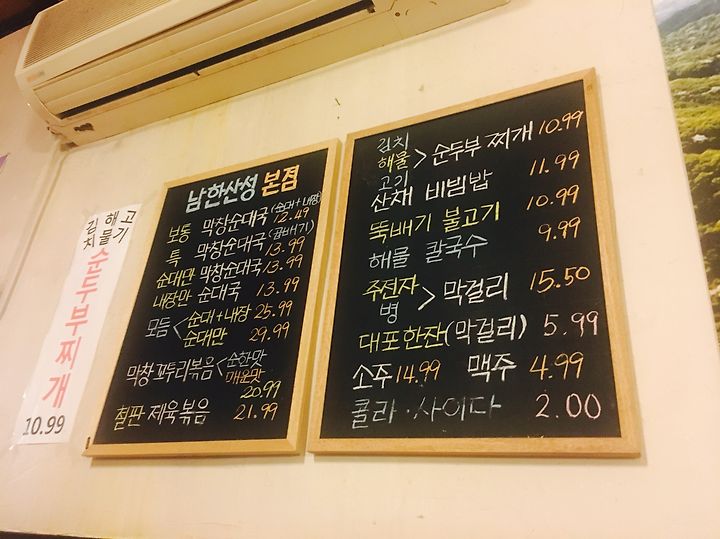 김 해 고
치 물 기
순두부찌개
10.99
남한산성 본점
보통 막창순대국 (순대+내장) 12.49
특 막창순대국 (곱배기) 13.99
순대만 막창순대국 13.99
내장만 순대국 13.99
모듬 < 순대+내장 25.99
순대만 29.99
막창꼬투리볶음 < 순한맛
매운맛
20.99
철판 제육볶음 21.99
김치
해물 > 순두부 찌개 10.99
고기
산채 비빔밥 11.99
뚝배기 불고기 10.99
해물 칼국수 9.99
주전자
병 > 막걸리 15.50
대포한잔(막걸리) 5.99
소주 14.99 맥주 4.99
콜라 · 사이다 2.00